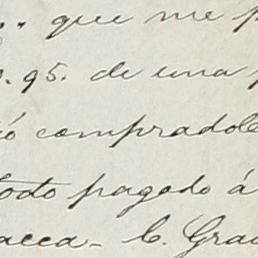 que me p
95. de una p
ó compradole
todo pagado á
acca - C. Grac